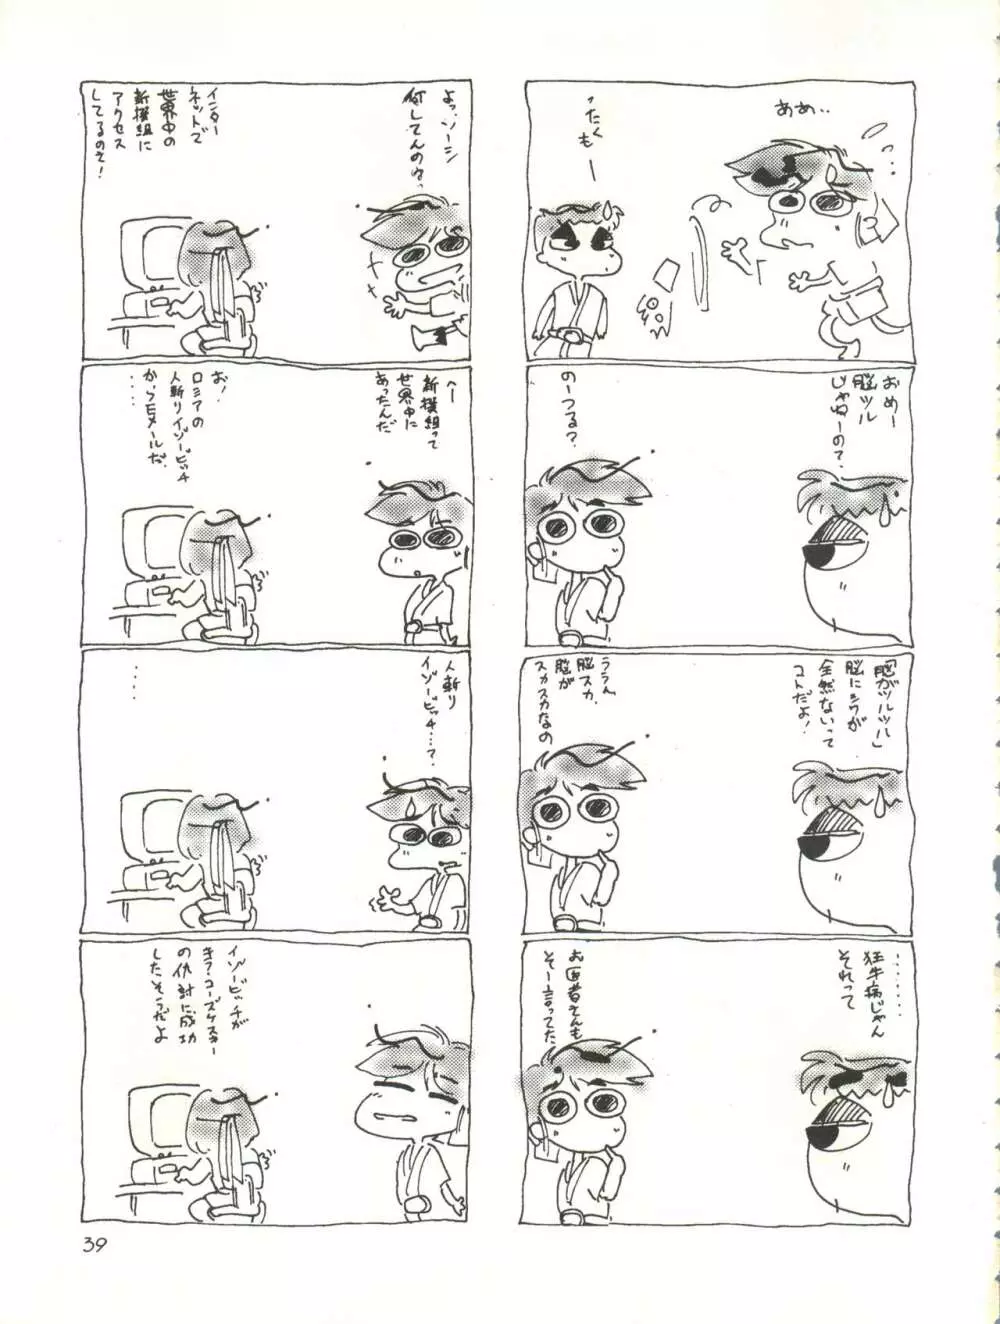 あめ‥
ったくもー
おめー
脳ツル
じゃねーの？
のーつる？
「脳がツルツル」
脳にシワが
全然ないって
コトだよ！
ううん
脳スカ.
脳が
スカスカなの
‥‥‥
狂牛病じゃん
それって
お医者さんも
そー言ってた.
よっ、ソージ
何してんのね.
インター
ネットで
世界中の
新撰組に
アクセス
してるのさ！
へー
新撰組って
世界中に
あったんだ
お！
ロシアの
人斬りイゾービッチ
からEメールだ.
‥‥
人斬り
イゾービッチ‥‥？
‥‥
イゾービッチが
キラ・コーズケスキー
の仇討に成功
したそうだよ
39